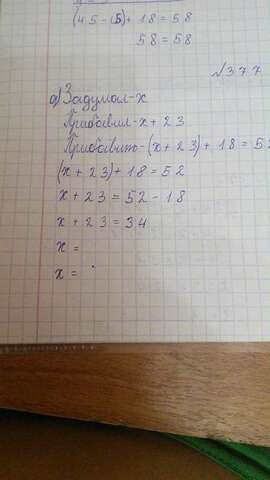 (45-5)+18=58
58=58
№377
а) Задумал-х
Прибавил-х+23
Прибавит-(х+23)+18=52
(х+23)+18=52
х+23=52-18
х+23=34
х=
х=